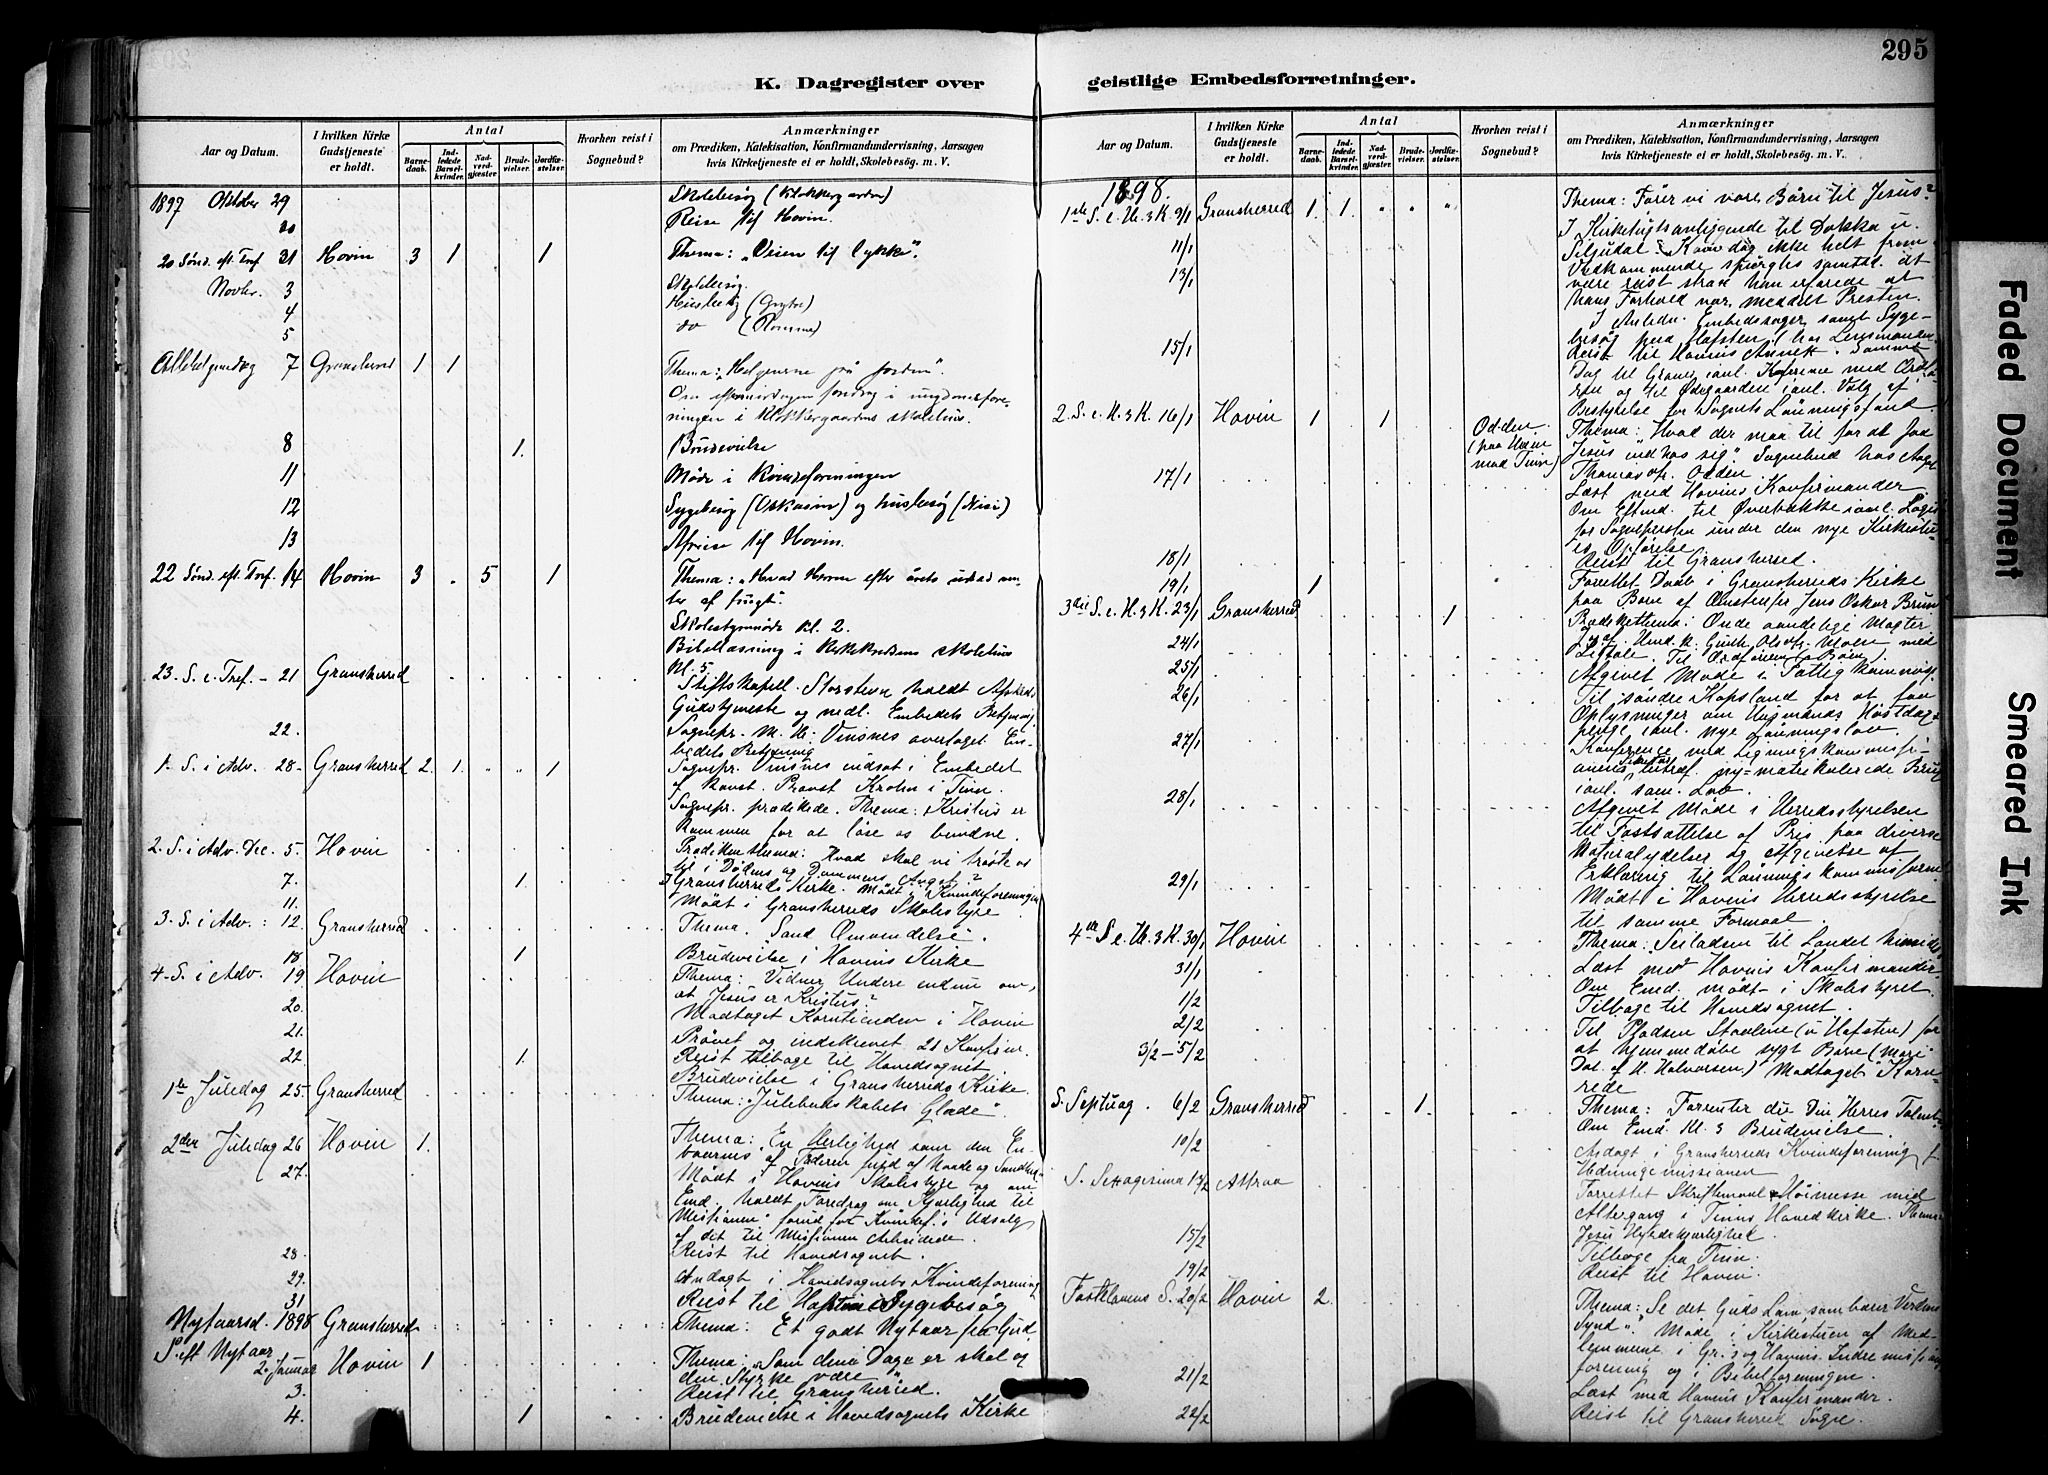 295
K. Dagregister over
geistlige Embedsforretninger.
Aar og Datum.
I hvilken Kirke Gudstjeneste er holdt.
Antal
Barne-daab.
Ind-ledede Barsel-kvinder.
Nad-verd-gjæster.
Brude-vielser.
Jordfæ-stelser.
Hvorhen reist i Sognebud?
Anmærkninger
om Prædiken, Katekisation, Konfirmandundervisning, Aarsagen
hvis Kirketjeneste ei er holdt, Skolebesøg. m. V.
1897 Oktober 29 Skolebesøg
30 Reise til Hovin.
20 Sønd. eft. Tref. 31 Hovin 3 1 1 Thema: "Veien til lykke".
Novbr. 3 Skolebesøg.
4 Husbesøg
5 do
Allehelgensdag 7 Gransherred 1 1 Thema: "Helgenerne på jorden".
Om eftermiddagen foredrag i ungdomsfore-
ningen i Klokkergaardens skolehus.
8 1. Brudevielse
11 Møde i Kvindeforeningen
12 Sygebesøg og husbesøg
13 Afreise til Hovin.
22 Sønd. eft. Tref. 14 Hovin 3 " 5 1 Thema: "Hvad Herren efter årets
af frugt".
Skolestyremøde kl. 2.
Bibellæsning i skolehus
Kl. 5
23. S. e. Tref. - 21 Gransherred Stiftskapell. Storsteen holdt Afskeds
Gudstjeneste og nedl. Embedets Betjening.
22. Sognepr. M. H. Vinsnes overtaget Em-
bedets Betjening
1. S. i Adv. 28 - Gransherred 2. 1. " " 1 Sognepr. Vinsnes indsat i Embedet
af Konst. Provst Krohn i Tinn.
Sognepr. prædikede. Thema: Kristus er
kommen for at løse os bundne.
2. S. i Adv. Dec. 5. Hovin Prædikenthema: Hvad skal vi trøste os
til i Dødens og Dommens Angst?
7. 1. I Gransherreds Kirke. Mødt i Kvindeforeningen
11. Mødt i Gransherreds Skolestyre.
3. S. i Adv.: 12 Gransherred Thema. "Sand Omvendelse".
18 1 Brudevielse i Hovins Kirke
4. S. i Adv. 19 Hovin Thema: Vidner Undere endnu om,
at Jesus er Kristus?
20. Modtaget Korntienden i Hovin
21. Prøvet og indskrevet 21 Konfirm.
22. 1. Reist tilbage til Hovedsognet
Brudevielse i Gransherreds Kirke.
1ste Juledag 25. Gransherred Thema: "Julebudskabets Glæde".
2den Juledag 26 Hovin 1. Thema: En Herlighed som den En-
baarnes af Faderen fuld af Naade og Sandhed.
27. Mødt i Hovins Skolestyre og om
Emd. holdt Foredrag om Kjærlighed til
Missionen forud for Kvindef.s Udsalg
af det til Missionen Arbeidede.
28. Reist til Hovedsognet.
29. Andagt i Hovedsognets Kvindeforening
31 Reist til Hafsten i Sygebesøg
Nytaarsd. 1898 Gransherred Thema: Et godt Nytaar fra Gud.
S. eft Nytaar
2. Januar Hovin 1 Thema: "Som dine Dage er skal og
din Styrke være"
3. Reist til Gransherred.
4. 1 Brudevielse i Hovedsognets Kirke
Aar og Datum.
I hvilken Kirke Gudstjeneste er holdt.
Antal
Barne-daab.
Ind-ledede Barsel-kvinder.
Nad-verd-gjæster.
Brude-vielser.
Jordfæ-stelser.
Hvorhen reist i Sognebud?
Anmærkninger
om Prædiken, Katekisation, Konfirmandundervisning, Aarsagen
hvis Kirketjeneste ei er holdt, Skolebesøg. m. V.
1898.
1ste S. e. H. 3 K. 9/1 Gransherred. 1. 1. " " " Thema: Fører vi vore Børn til Jesus?
11/1 I Kirketugtsanliggende til Dokka u.
Siljudal. Kom dog ikke helt frem
13/1 Vedkommende spurgtes samtid. at
være reist strax han erfarede at
hans Forhold var meddelt Presten.
I Anledn. Embedssager samt Syge-
besøg paa Hafsten (hos Lensmanden.
15/1 Reist til Hovins Annex. Samme
Dag til Gran i anl. Konference med Ordfø-
ren og til Ødegaarden i anl. Valg af
Bestyrelse for Sognets Lønningsfond.
2. S. e. H. 3 K. 16/1 Hovin 1 1 Odden (paa mod Tinn) Thema: "Hvad der maa til for at faa
Jesus ind hos sig" Sognebud hos Aage
Thomas. op. Odden.
17/1 Læst med Hovins Konfirmander
Om Eftmd. til Øverbakke i anl. Logis
for Sognepresten under den nye Kirkestu-
es Opførelse.
18/1 Reist til Gransherred.
19/1 1 Forrettet Daab i Gransherreds Kirke
paa Barn af Jens Oskar Brun
3die S. e. H. 3 K. 23/1 Gransherred 1 Prædikethema: Onde aandelige Magter
24/1 Ligtale. Til Ordføreren
25/1 Afgivet Møde i Fattigkommis.
26/1 Til søndre Kopsland for at faa
Oplysninger om Høstdags
penge i anl. nye Lønningslov.
27/1 Konference med Ligningskommissi-
onens
i anl. sam. Lov.
28/1 Afgivet Møde i Herredsstyrelsen
til Fastsættelse af Pris paa diverse
Naturalydelser og Afgivelse af
Erklæring til Lønningskommissionen
29/1 Mødt i Hovins Herredsstyrelse
til samme Formaal.
4de S. e. H. 3 K. 30/1 Hovin Thema: Seiladsen til Landet hinsides
31/1 Læst med Hovins Konfirmander.
Om Emd. mødt i Skolestyret.
1/2 Tilbage til Hovedsognet.
2/2 Til Pladsen (u Hafsten) for
3/2 - 5/2 at hjemmedøbe sygt Barn (Mari
Dat. af H. Halvorsen.) Modtaget Korn-
rede
S. Septuag. 6/2 Gransherred 1. Thema: Forrenter du Din Herres Talent?
Om Emd. Kl. 3 Brudevielse.
10/2 Andagt i Gransherreds Kvindeforening f.
Hedningemissionen
S. Sexagesima 13/2 Attraa Forrettet Skriftemaal & Høimesse med
Altergang i Tinns Hovedkirke. Thema:
Jesu Hyrdekjærlighed.
15/2 Tilbage fra Tinn.
19/2 Reist til Hovin.
Fastelavens S. 20/2 Hovin 2. Thema: Se det Guds Lam, som bærer Verdens
Synd". Møde i Kirkestuen af Med-
lemmene i Gr.s og Hovins Indremissions
forening og i Bibelforeningen.
21/2 Læst med Hovins Konfirmander.
22/2 Reist til Gransherred Sogn.
Faded Document
Smeared Ink